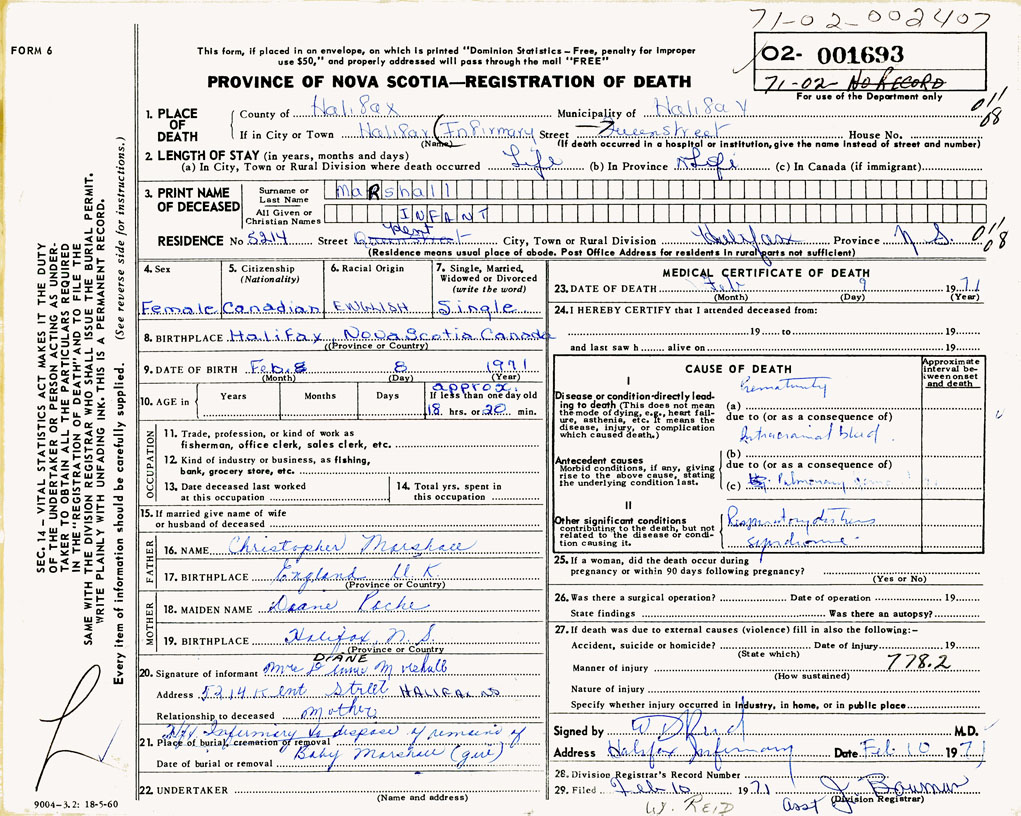 71-02-002407
FORM 6
This form, if placed in an envelope, on which is printed "Dominion Statistics – Free, penalty for improper
use $50," and properly addressed will pass through the mail "FREE"
PROVINCE OF NOVA SCOTIA—REGISTRATION OF DEATH
02- 001693
71-02- NO RECORD
For use of the Department only
1. PLACE OF DEATH
County of Halifax Municipality of Halifax
011/08
If in City or Town Halifax (Infirmary Street Queen Street House No.
(Name) (If death occurred in a hospital or institution, give the name instead of street and number)
2. LENGTH OF STAY (in years, months and days)
(a) In City, Town or Rural Division where death occurred Life (b) In Province Life (c) In Canada (if immigrant)
3. PRINT NAME OF DECEASED
Surname or Last Name Marshall
All Given or Christian Names INFANT
RESIDENCE No. 5214 Street Kent City, Town or Rural Division Halifax Province N.S. 011/08
(Residence means usual place of abode. Post Office Address for residents in rural parts not sufficient)
4. Sex
Female
5. Citizenship
(Nationality)
Canadian
6. Racial Origin
ENGLISH
7. Single, Married,
Widowed or Divorced
(write the word)
Single
8. BIRTHPLACE Halifax, Nova Scotia Canada
(Province or Country)
9. DATE OF BIRTH Feb. 8 1971
(Month) (Day) (Year)
10. AGE in Years Months Days
approx.
If less than one day old
18 hrs. or 20 min.
OCCUPATION
11. Trade, profession, or kind of work as
fisherman, office clerk, sales clerk, etc.
12. Kind of industry or business, as fishing,
bank, grocery store, etc.
13. Date deceased last worked
at this occupation
14. Total yrs. spent in
this occupation
15. If married give name of wife
or husband of deceased
FATHER
16. NAME Christopher Marshall
17. BIRTHPLACE England U K
(Province or Country)
MOTHER
18. MAIDEN NAME Diane
19. BIRTHPLACE Halifax, N. S.
(Province or Country)
DIANE
20. Signature of informant Mrs Diane Marshall
Address 5214 Kent Street HALIFAX NS
Relationship to deceased Mother
Hfx Infirmary to dispose of remains of
21. Place of burial, cremation or removal
Baby Marshall (girl)
Date of burial or removal
22. UNDERTAKER
(Name and address)
MEDICAL CERTIFICATE OF DEATH
23. DATE OF DEATH Feb 9 1971
(Month) (Day) (Year)
24. I HEREBY CERTIFY that I attended deceased from:
19 to 19
and last saw h alive on 19
CAUSE OF DEATH
Approximate interval between onset and death
I
Disease or condition directly leading to death (This does not mean
the mode of dying, e.g., heart failure, asthenia, etc. It means the
disease, injury, or complication
which caused death.)
Prematurity
(a)
due to (or as a consequence of)
Intracranial bleed
Antecedent causes
Morbid conditions, if any, giving
rise to the above cause, stating
the underlying condition last.
(b)
due to (or as a consequence of)
(c) Pulmonary
II
Other significant conditions
contributing to the death, but not
related to the disease or condition causing it.
Respiratory distress
syndrome
25. If a woman, did the death occur during
pregnancy or within 90 days following pregnancy?
(Yes or No)
26. Was there a surgical operation? Date of operation 19
State findings Was there an autopsy?
27. If death was due to external causes (violence) fill in also the following:–
Accident, suicide or homicide? Date of injury 19
(State which)
Manner of injury 778.2
(How sustained)
Nature of injury
Specify whether injury occurred in industry, in home, or in public place
Signed by W D Reid M.D.
Address Halifax Infirmary Date Feb. 10 1971
28. Division Registrar's Record Number
29. Filed Feb 10 1971
W. REID
asst
(Division Registrar)
SEC. 14 – VITAL STATISTICS ACT MAKES IT THE DUTY
OF THE UNDERTAKER OR PERSON ACTING AS UNDER-
TAKER TO OBTAIN ALL THE PARTICULARS REQUIRED
IN THE "REGISTRATION OF DEATH" AND TO FILE THE
SAME WITH THE DIVISION REGISTRAR WHO SHALL ISSUE THE BURIAL PERMIT.
WRITE PLAINLY WITH UNFADING INK. THIS IS A PERMANENT RECORD.
Every item of information should be carefully supplied. (See reverse side for instructions.)
9004–3.2: 18-5-60